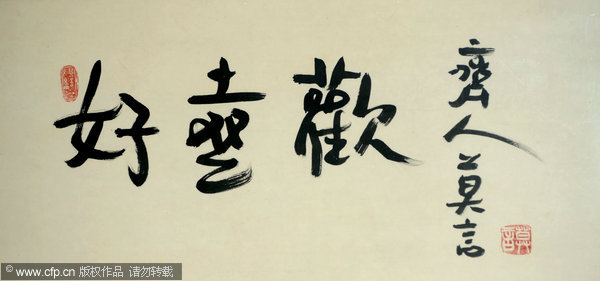 好喜歡
齊人莫言
莫言
www.cfp.cn 版权作品 请勿转载